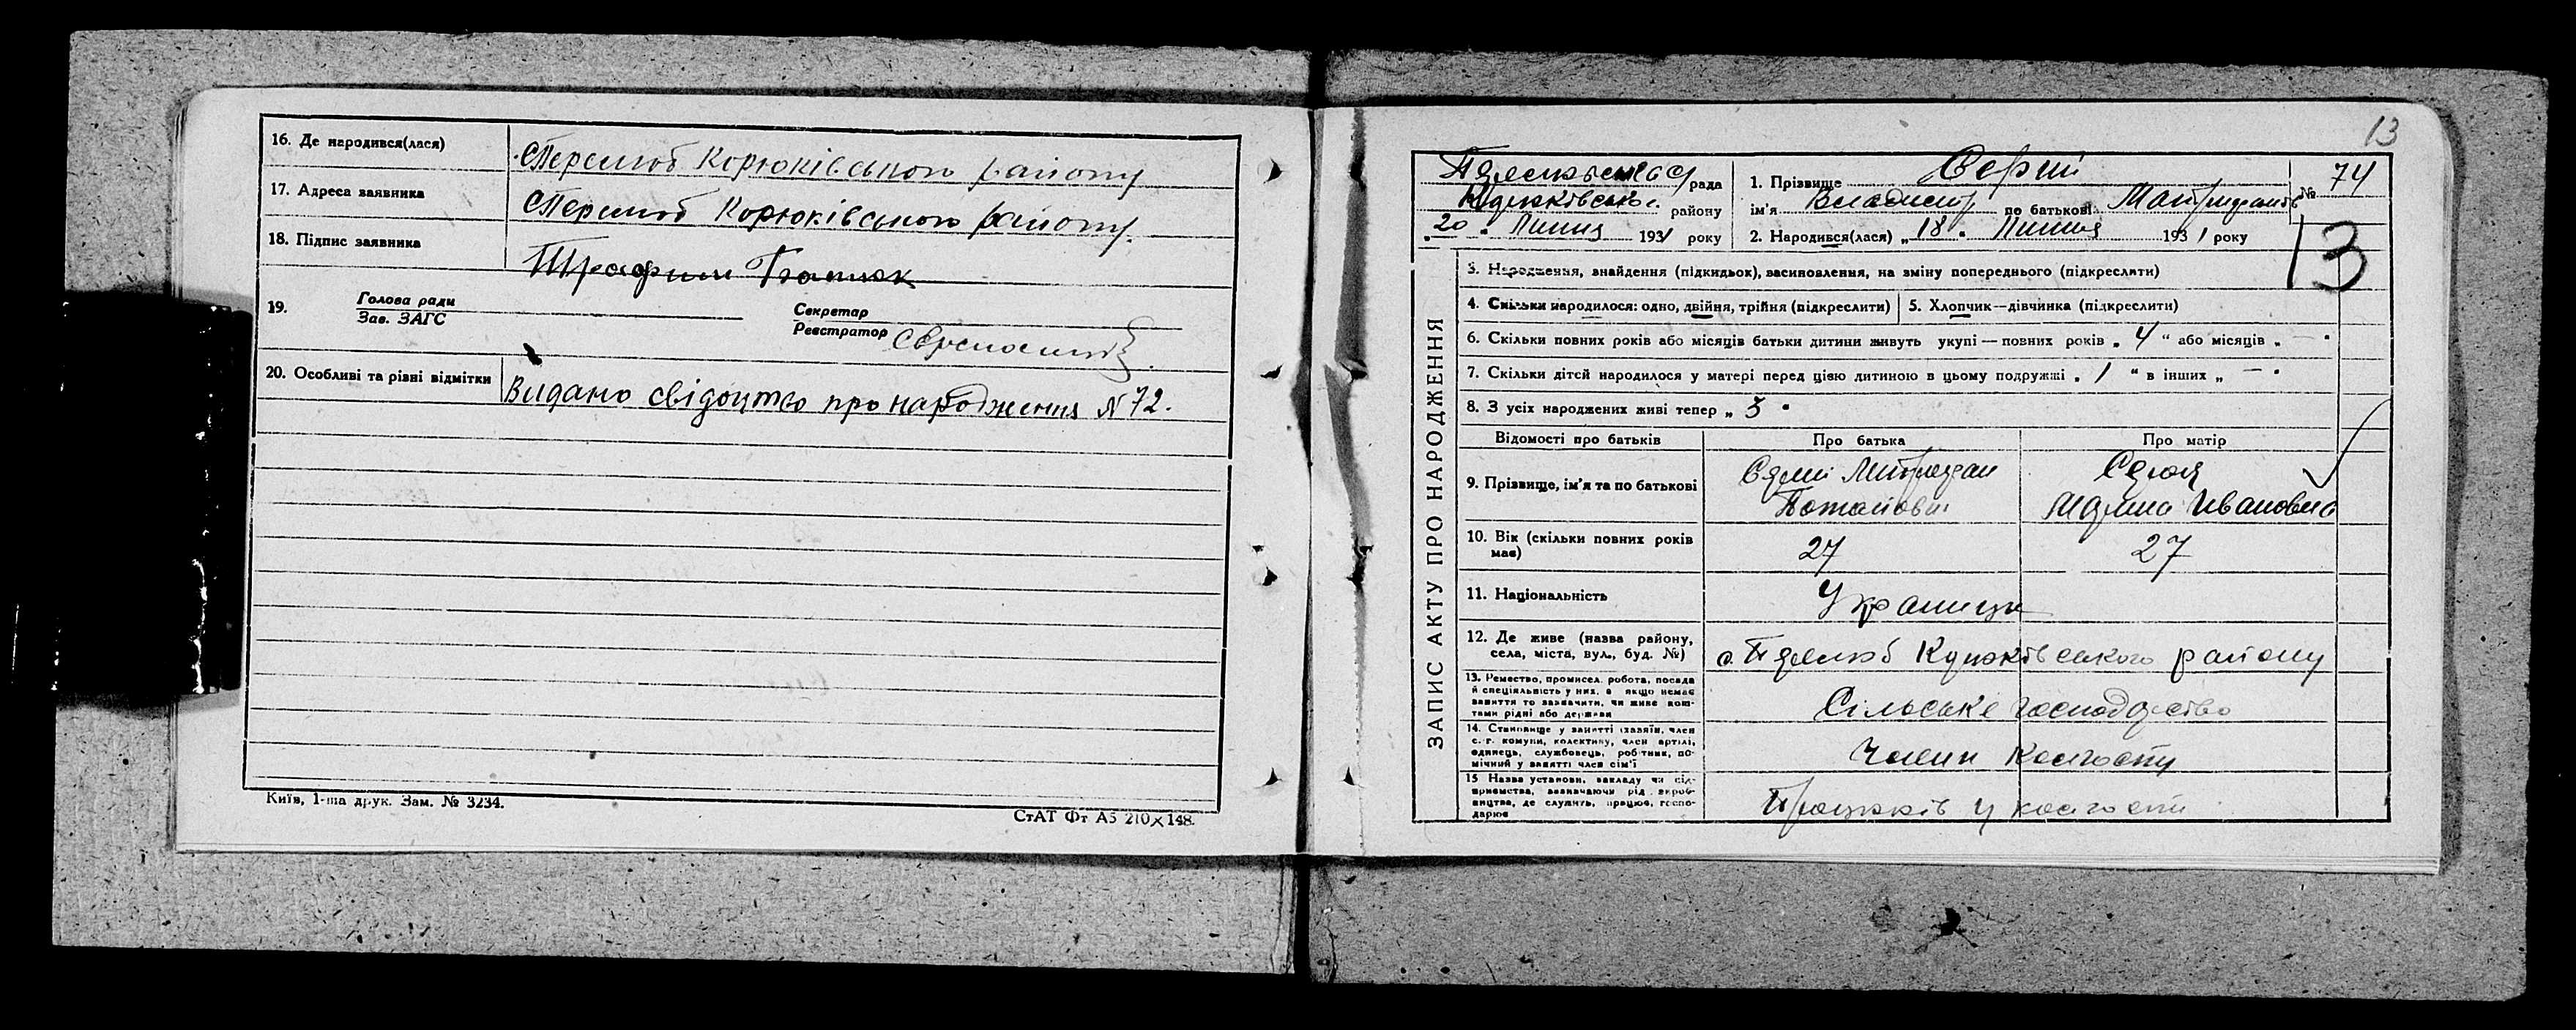 16. Де народився(лася)
с Перелюб Корюківського району
17. Адреса заявника
с Перелюб Корюківського району.
18. Підпис заявника
Трофим
19. Голова ради
Зав. ЗАГС
Секретар
Реєстратор
20. Особливі та рівні відмітки
Видано свідоцтво про народження N 72.
Київ, 1-ша друк. Зам. № 3234.
СтАТ Фт А5 210×148.
13
рада
району
"20" Липня 1931 року
1. Прізвище
ім'я Владимір по батькові
2. Народився(лася) "18" Липня 1931 року
№ 74
13
ЗАПИС АКТУ ПРО НАРОДЖЕННЯ
3. Народження, знайдення (підкидьок), васиновлення, на зміну попереднього (підкреслити)
4. Скільки народилося: одно, двійня, трійня (підкреслити)
5. Хлопчик—дівчинка (підкреслити)
6. Скільки повних років або місяців батьки дитини живуть укупі — повних років „ 4 “ або місяців „ — “
7. Скільки дітей народилося у матері перед цією дитиною в цьому подружжі „ 1 “ в інших „ — “
8. З усіх народжених живі тепер „ 3 “
Відомості про батьків
Про батька
Про матір
9. Прізвище, ім'я та по батькові
Митрофан
Потапович
Ивановна
10. Вік (скільки повних років має)
27
27
11. Національність
Украинци
12. Де живе (назва району,
села, міста, вул., буд. №)
с. Перелюб Корюківського району
13. Ремество, промисел, робота, посада
й спеціяльність у них, а якщо немає
заняття то зазначити, чи живе кош-
тами рідні або держави
Сільське господарство
14. Становище у занятті (хазяїн, член
с.-г. комуни, колективу, член артілі,
одинець, службовець, робітник, по-
мічний у занятті член сім'ї
Член колгоспу
15 Назва установи, закладу чи під-
приємства, зазначаючи рід вироб-
ництва, де служить, працює, госпо-
дарює
у колгоспі